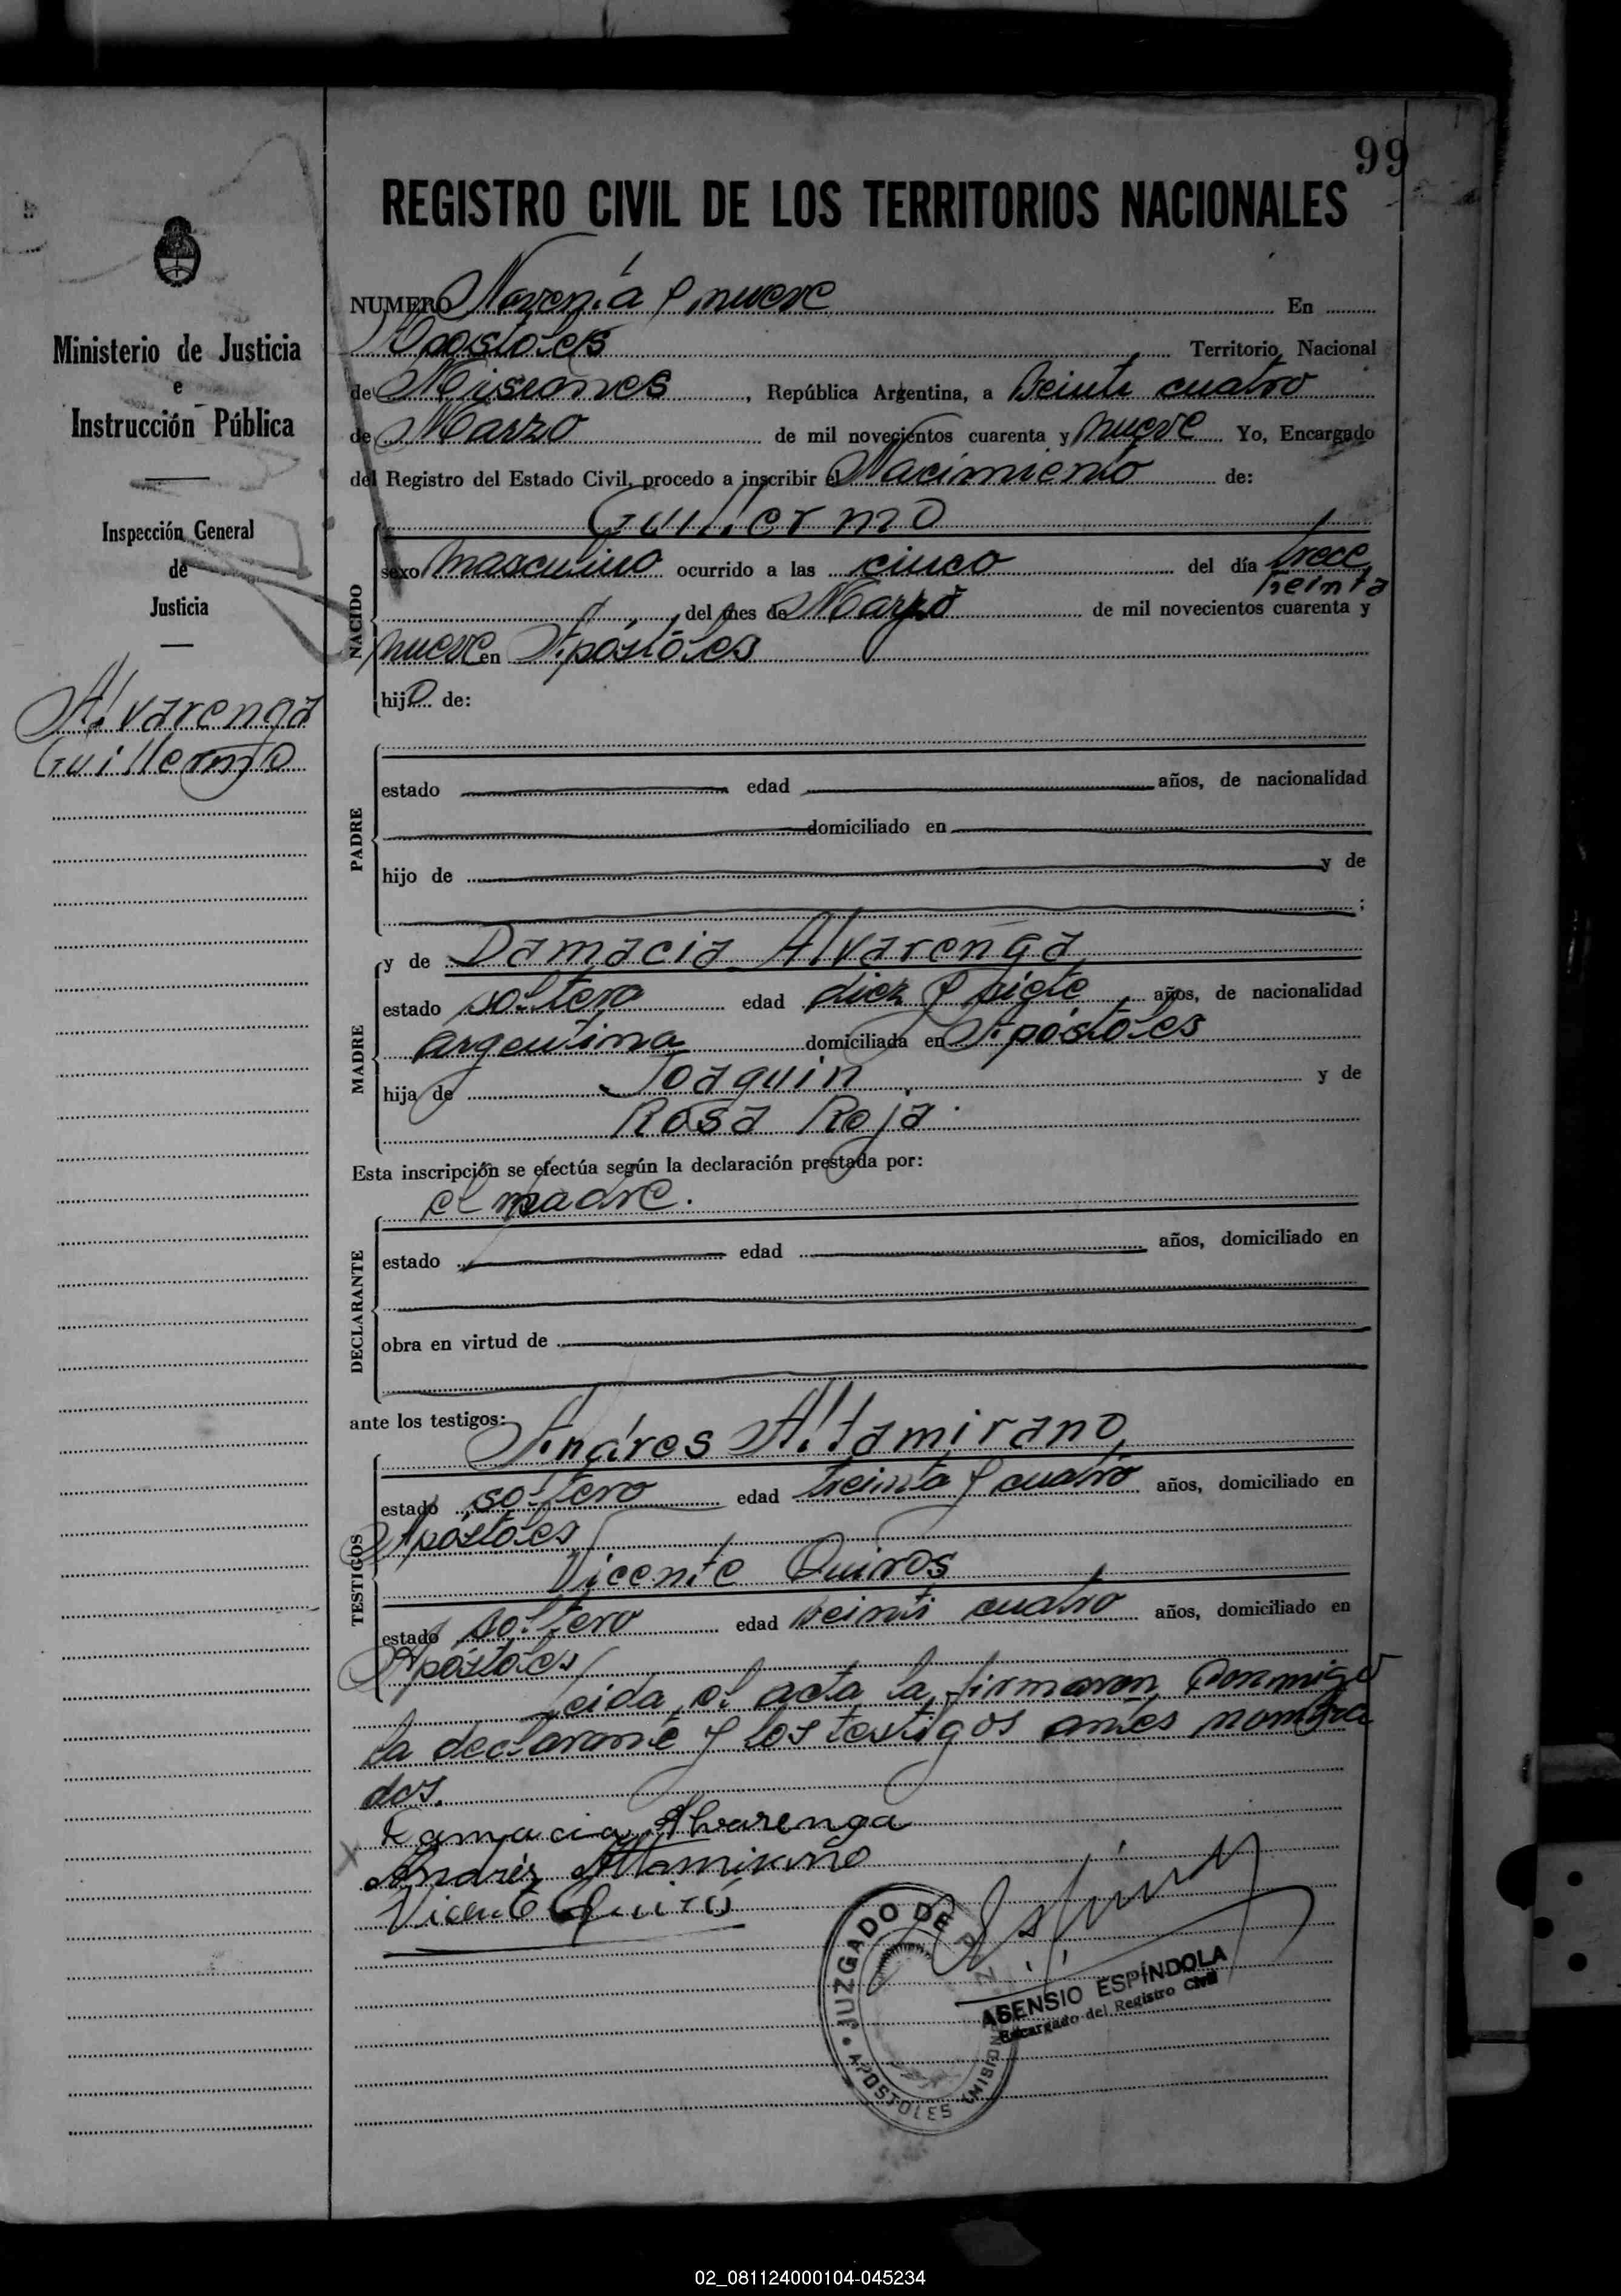 99
REGISTRO CIVIL DE LOS TERRITORIOS NACIONALES
Ministerio de Justicia
e
Instrucción Pública
Inspección General
de
Justicia
Alvarenga
Guillermo
NUMERO Noventa y nueve En
Apostoles Territorio Nacional
de Misiones, República Argentina, a Veinte cuatro
de Marzo de mil novecientos cuarenta y nueve Yo, Encargado
del Registro del Estado Civil, procedo a inscribir el Nacimiento de:
Guillermo
NACIDO
sexo masculino ocurrido a las cinco del día trece
treinta
del mes de Marzo de mil novecientos cuarenta y
nueve en Apóstoles
hijo de:
PADRE
estado edad años, de nacionalidad
domiciliado en
hijo de y de
;
MADRE
y de Damacia Alvarenga
estado soltera edad diez y siete años, de nacionalidad
argentina domiciliada en Apóstoles
hija de Joaquin y de
Rosa Roja.
Esta inscripción se efectúa según la declaración prestada por:
el madre.
DECLARANTE
estado edad años, domiciliado en
obra en virtud de
ante los testigos:
Andres Altamirano,
TESTIGOS
estado soltero edad treinta y cuatro años, domiciliado en
Apóstoles
Vicente Quiros
estado soltero edad veinti cuatro años, domiciliado en
Apóstoles
Leida el acta la firmaron conmigo
la declarante y los testigos antes nombra
dos.
Damacia Alvarenga
Andrés Altamirano
Vicente Quiros
JUZGADO DE PAZ
APOSTOLES (MISIONES)
ASENSIO ESPÍNDOLA
Encargado del Registro Civil
02_081124000104-045234